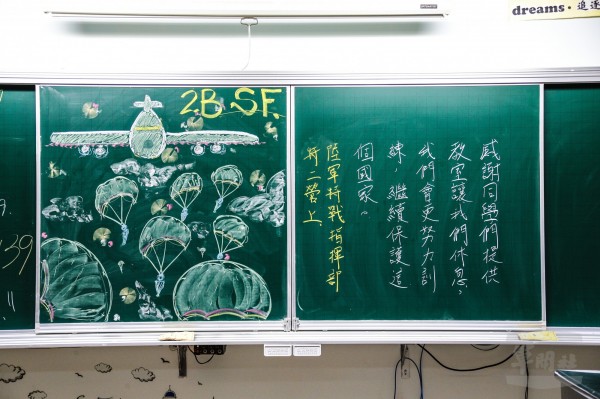 dreams · 追逐
2.B SF.
感謝同學們提供
教室讓我們休息，
我們會更努力訓
練，繼續保護這
個國家。
陸軍特戰指揮部
特二營上
39
!!
軍聞社